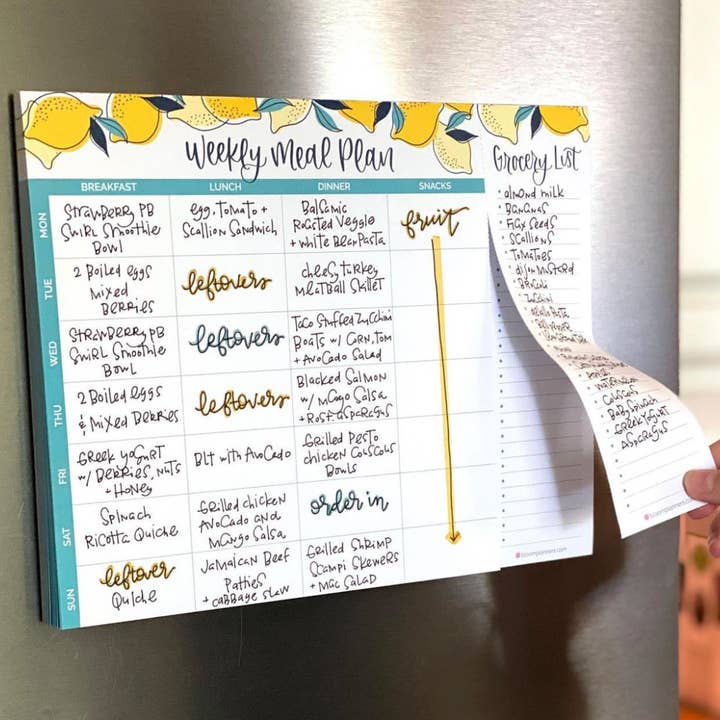 Weekly Meal Plan
BREAKFAST LUNCH DINNER SNACKS
MON
Strawberry PB
Swirl Smoothie
Bowl
egg, Tomato +
Scallion Sandwich
Balsamic
Roasted Veggie
+ White Bean Pasta
fruit
TUE
2 Boiled eggs
Mixed
Berries
leftovers
cheesy Turkey
Meatball Skillet
WED
Strawberry PB
Swirl Smoothie
Bowl
leftovers
Taco Stuffed Zucchini
Boats w/ Corn, Tom
+ Avocado Salad
THU
2 Boiled eggs
& Mixed Berries
leftovers
Blacked Salmon
w/ Mango Salsa
+ Rost. Asparagus
FRI
Greek yogurt
w/ Berries, Nuts
+ Honey
BLT with Avocado
Grilled Pesto
chicken Couscous
Bowls
SAT
Spinach
Ricotta Quiche
Grilled chicken
Avocado and
Mango Salsa
order in
SUN
leftover
Quiche
Jamaican Beef
Patties
+ cabbage slaw
Grilled Shrimp
Scampi Skewers
+ Mac Salad
Grocery List
almond milk
Bananas
Flax seeds
Scallions
Tomatoes
dijon mustard
Broccoli
Zucchini
Couscous
Baby Spinach
Greek Yogurt
Asparagus
bloomplanners.com
bloomplanners.com